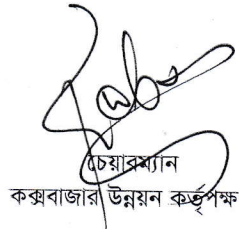 চেয়ারম্যান
কক্সবাজার উন্নয়ন কর্তৃপক্ষ